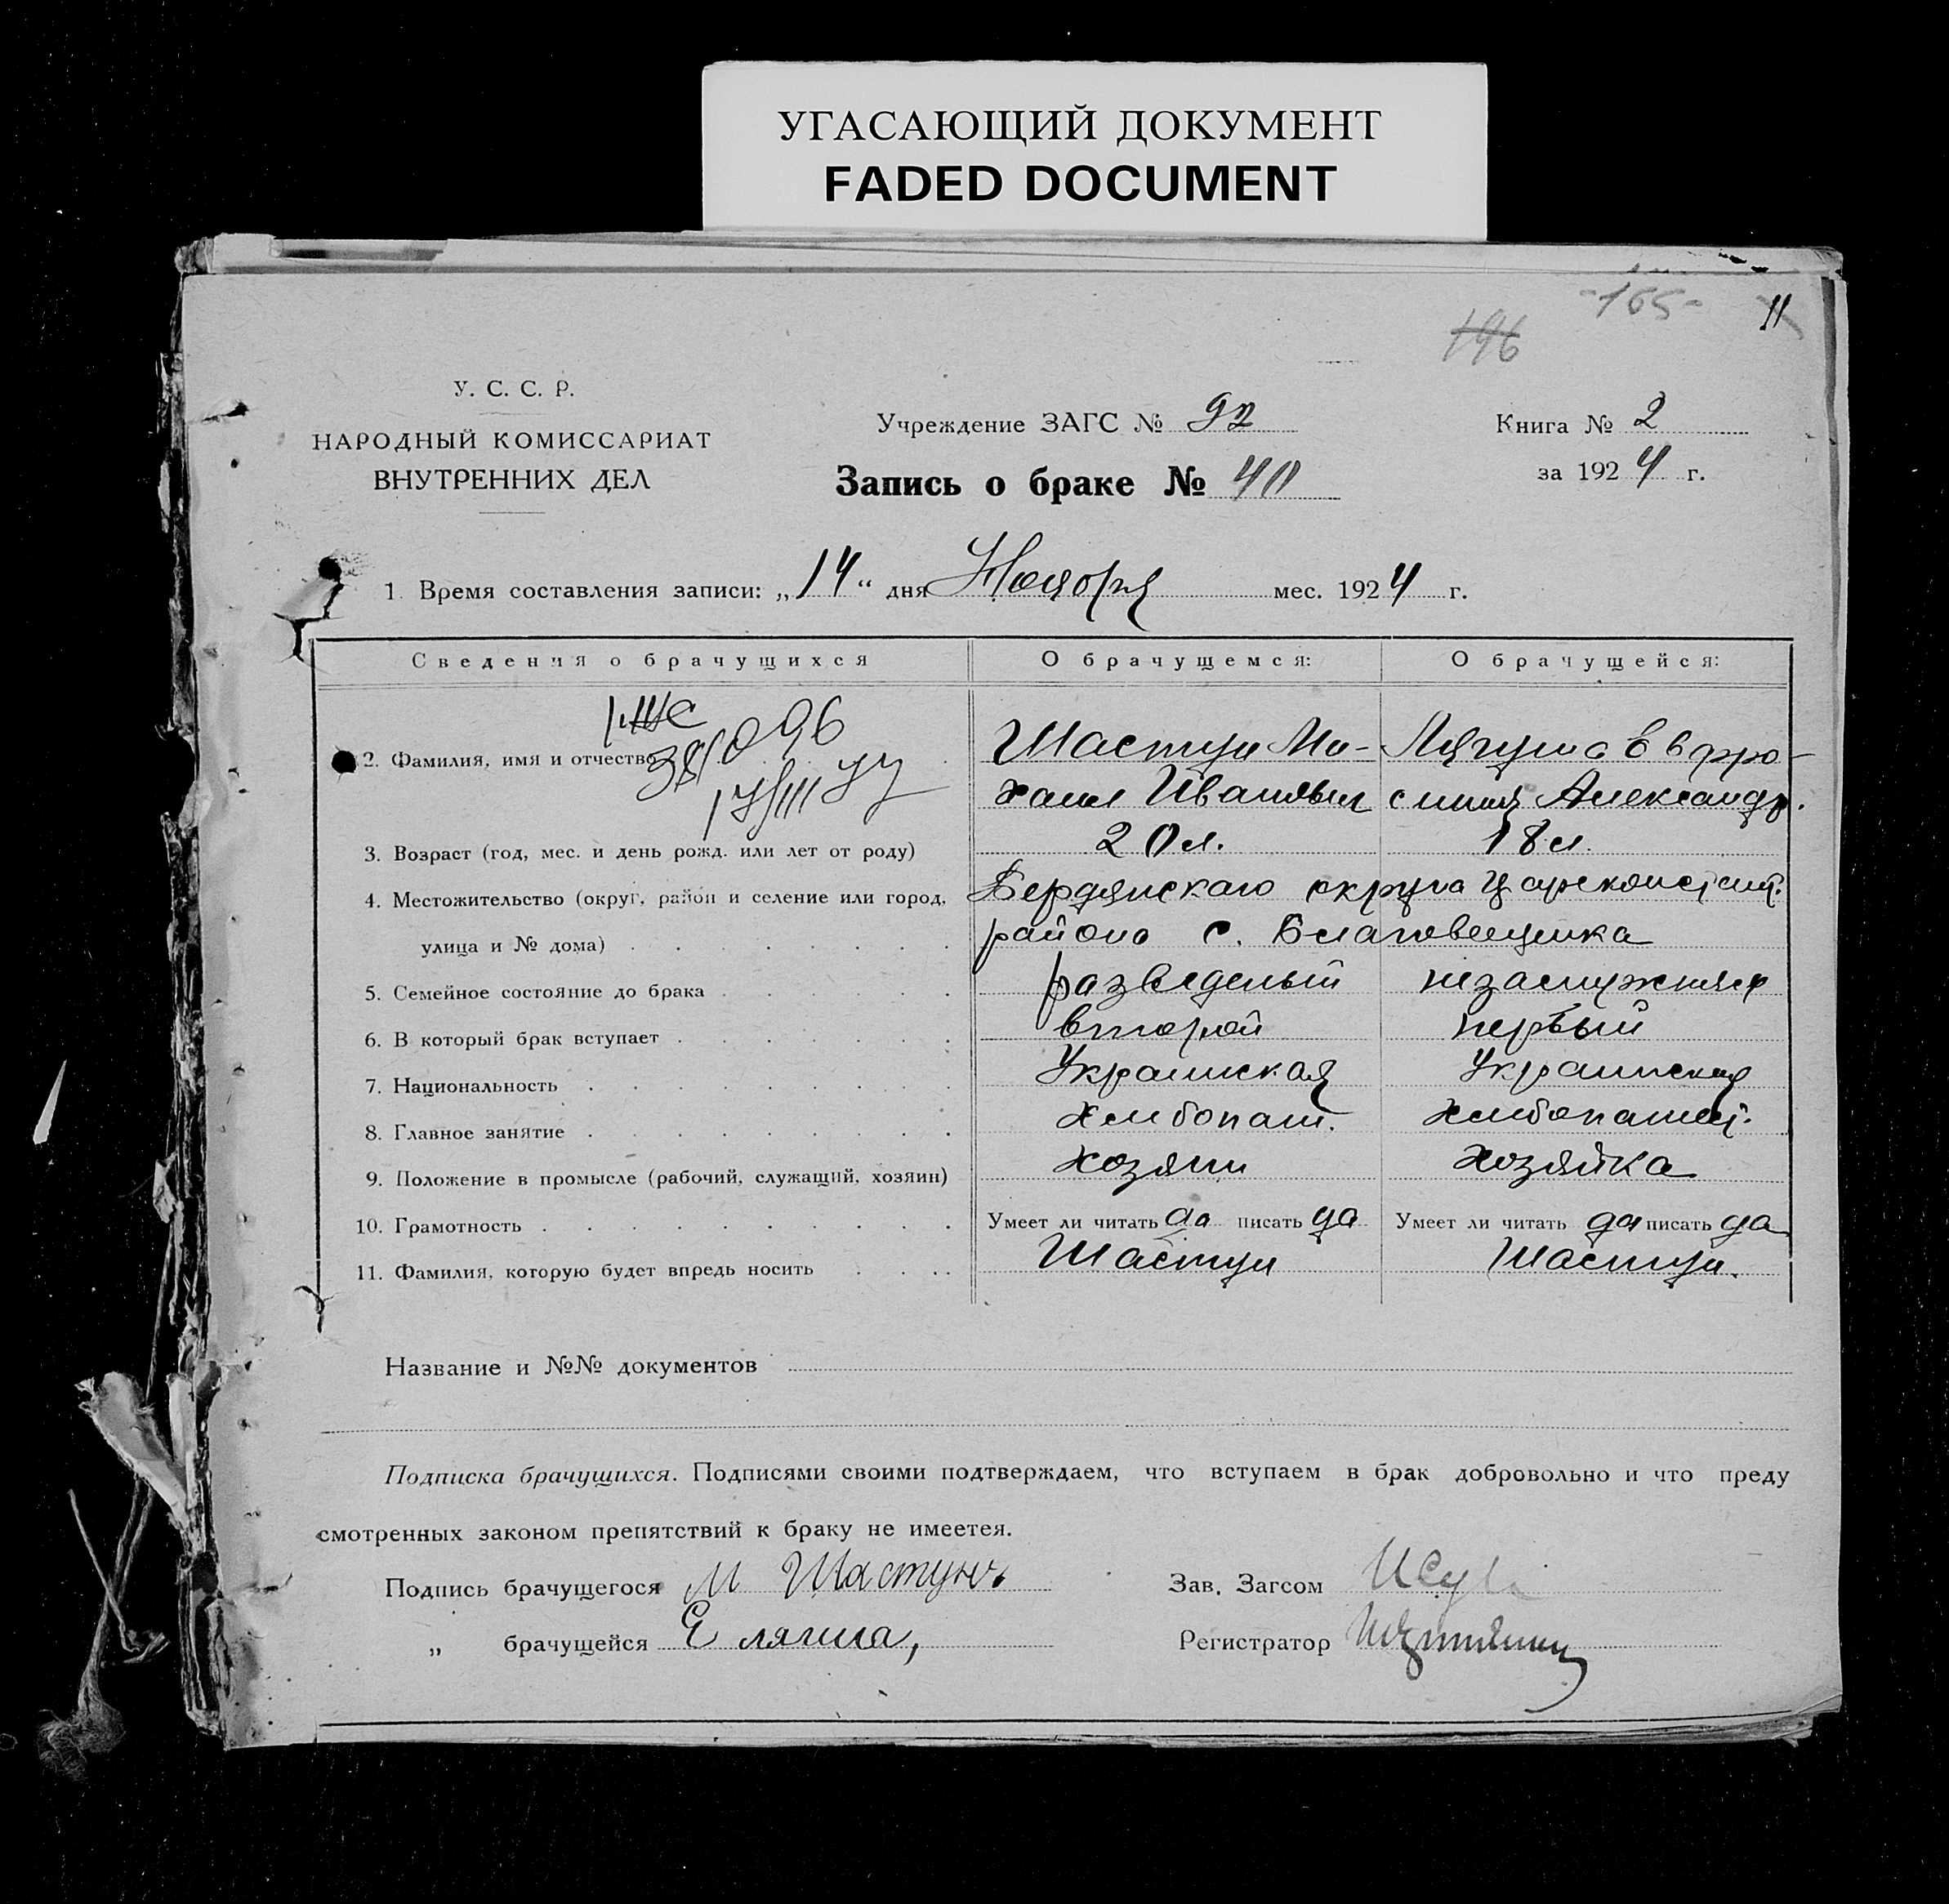 УГАСАЮЩИЙ ДОКУМЕНТ
FADED DOCUMENT
-165- 11
196
У. С. С. Р.
НАРОДНЫЙ КОМИССАРИАТ
ВНУТРЕННИХ ДЕЛ
Учреждение ЗАГС № 92
Книга № 2
Запись о браке № 40
за 1924 г.
1. Время составления записи: „14“ дня Ноября мес. 1924 г.
Сведения о брачущихся О брачущемся: О брачущейся:
2. Фамилия, имя и отчество Шастун Ми- Ефро-
хаил Иванович синия Александр.
3. Возраст (год, мес. и день рожд. или лет от роду) 20 л. 18 л.
4. Местожительство (округ, район и селение или город, Бердянскаго округа Цареконстант.
улица и № дома) района с. Благовещенка
5. Семейное состояние до брака разведеный незамужняя
6. В который брак вступает второй первый
7. Национальность Украинская Украинская
8. Главное занятие хлибопаш. хлибопашес.
9. Положение в промысле (рабочий, служащий, хозяин) хозяин хозяйка
10. Грамотность Умеет ли читать да писать да Умеет ли читать да писать да
11. Фамилия, которую будет впредь носить Шастун Шастун.
Название и №№ документов
Подписка брачущихся. Подписями своими подтверждаем, что вступаем в брак добровольно и что преду
смотренных законом препятствий к браку не имеетея.
Подпись брачущегося М Шастунъ Зав. Загсом
„ брачущейся Е Регистратор